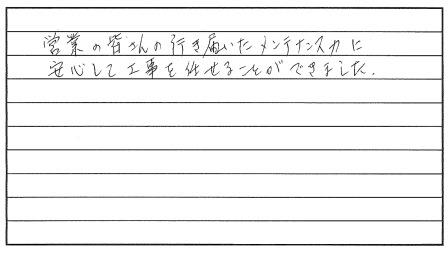 営業の皆さんの行き届いたメンテナンス力に
安心して工事を任せることができました.